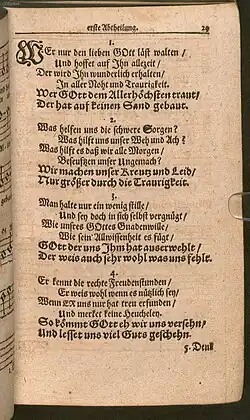 erste Abtheilung. 29
1.
WEr nur den lieben GOtt läst walten /
Und hoffet auf Jhn allezeit /
Der wird Jhn wunderlich erhalten /
Jn aller Noht und Traurigkeit.
Wer GOtt dem Allerhöchsten traut /
Der hat auf keinen Sand gebaut.
2.
Was helfen uns die schwere Sorgen?
Was hilft uns unser Weh und Ach?
Was hilft es daß wir alle Morgen /
Beseufzen unser Ungemach?
Wir machen unser Kreutz und Leid /
Nur größer durch die Traurigkeit.
3.
Man halte nur ein wenig stille /
Und sey doch in sich selbst vergnügt /
Wie unsres GOttes Gnadenwille /
Wie sein' Allwissenheit es fügt /
GOtt der uns Jhm hat auserwehlt /
Der weis auch sehr wohl was uns fehlt.
4.
Er kennt die rechte Freudenstunden /
Er weis wohl wenn es nützlich sey /
Wenn ER uns nur hat treu erfunden /
Und merket keine Heucheley.
So kömmt GOtt eh wir uns versehn /
Und lesset uns viel Guts geschehn.
5. Denk